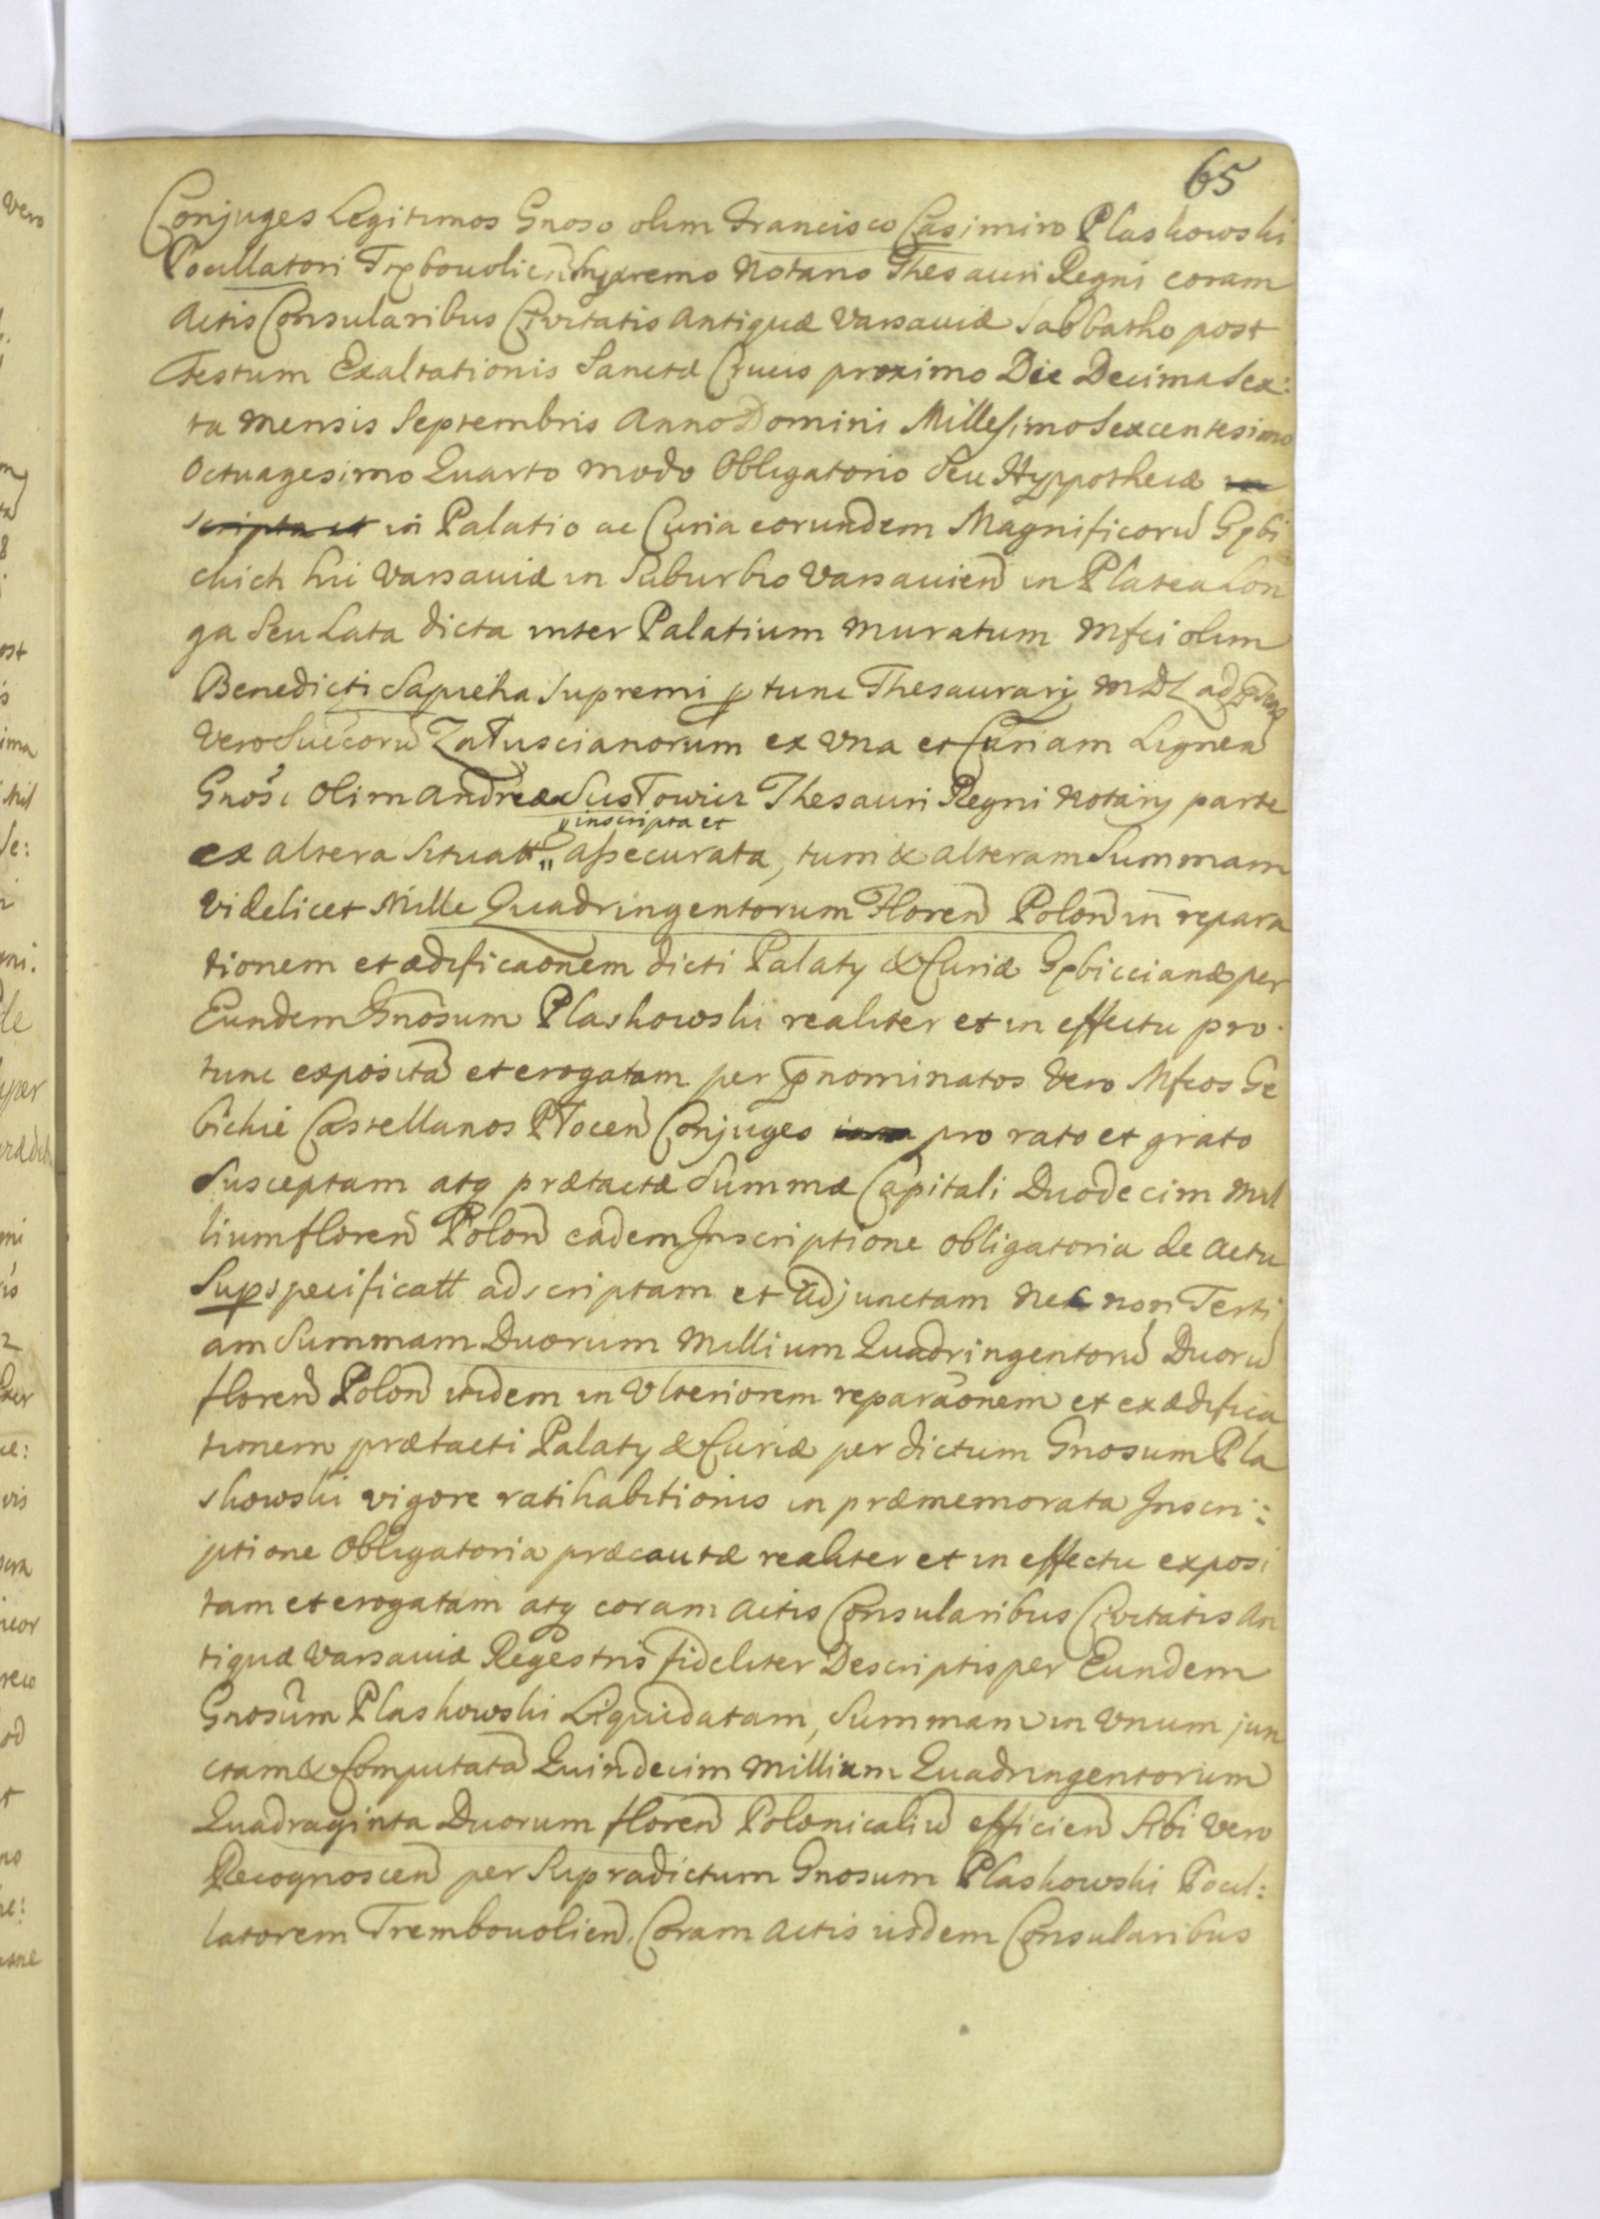 65
Conjuges Legitimos Gnoso olim Francisco Casimiro Plaskowski
Pocillatori Trębouolien Supremo Notario Thesauri Regni coram
Actis Consularibus Civitatis Antiquæ Varsaviæ Sabbatho post
Festum Exaltationis Sanctæ Crucis proximo Die Decima Sex:
ta Mensis Septembris Anno Domini Millesimo Sexcentesimo
Octuagesimo Quarto modo Obligatorio Seu Hyppothecæ in
scripta et in Palatio ac Curia eorundem Magnificorū Gębi
ckich hic Varsaviæ in Suburbio Varsavien in Platea Lon
ga Seu Lata dicta inter Palatium Muratum Mfci olim
Benedicti Sapieha Supremi p tunc Thesaurarij MDL ad
Vero Succorū Załuscianorum ex Vna et Curiam Ligneā
Gnosi Olim Andreæ Susłowicz Thesauri Regni Notarij parte
inscripta et
ex altera Situatt " assecurata, tum & alteram Summam
Videlicet Mille Quadringentorum Floren Polon in repara
tionem et ædificaonem dicti Palatij & Curiæ Gębiccianæ per
Eundem Gnosum Plaskowski realiter et in effectu pro
tunc expositā et erogatam per pnominatos Vero Mfcos Gę
bickie Castellanos Płocen Conjuges pro rato et grato
Susceptam atq prætactæ Summæ Capitali Duodecim Mil
lium floren Polon eadem Inscriptione obligatoria de Actu
Supspecificatt adscriptam et adjunctam Nec non Terti
am Summam Duorum Millium Quadringentorū Duorū
floren Polon itidem in Vlteriorem reparaonem et exædifica
tionem prætacti Palatij & Curiæ per dictum Gnosum Pla
skowski vigore ratihabitionis in præmemorata Inscri:
ptione Obligatoria præcautæ realiter et in effectu exposi
tam et erogatam atq coram Actis Consularibus Civitatis An
tiquæ Varsaviæ Regestris fideliter Descriptis per Eundem
Gnosum Plaskowski Liquidatam, Summam in Vnum jun
ctam & Computatā Quindecim Millium Quadringentorum
Quadraginta Duorum floren Polonicaliū efficien Sibi Vero
Recognoscen per Supradictum Gnosum Plaskowski Pocil:
latorem Trembouolien. Coram Actis iisdem Consularibus